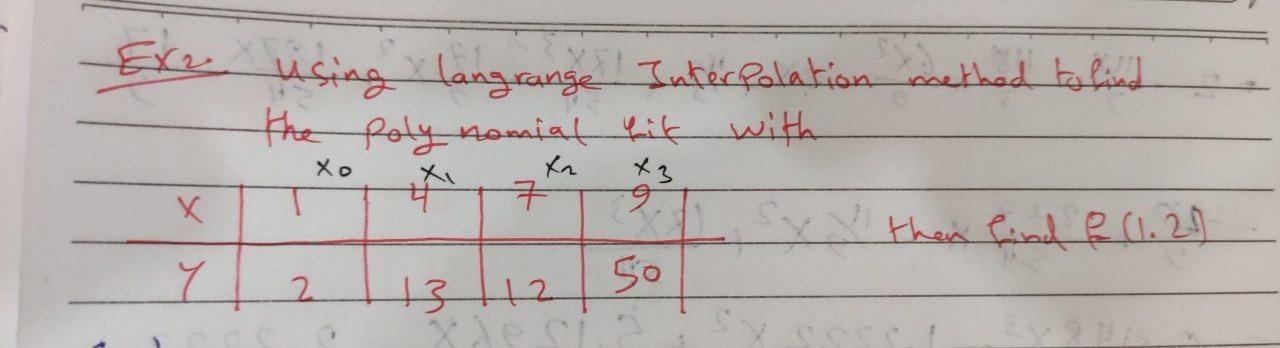 Ex2. Using langrange Interpolation method to find
the polynomial fit with
x0 x1 x2 x3
X 1 4 7 9
then find f(1.2)
Y 2 13 12 50